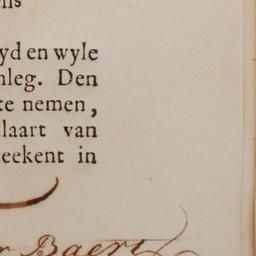 yd en wyle
nleg. Den
te nemen,
laart van
eekent in
r Baert